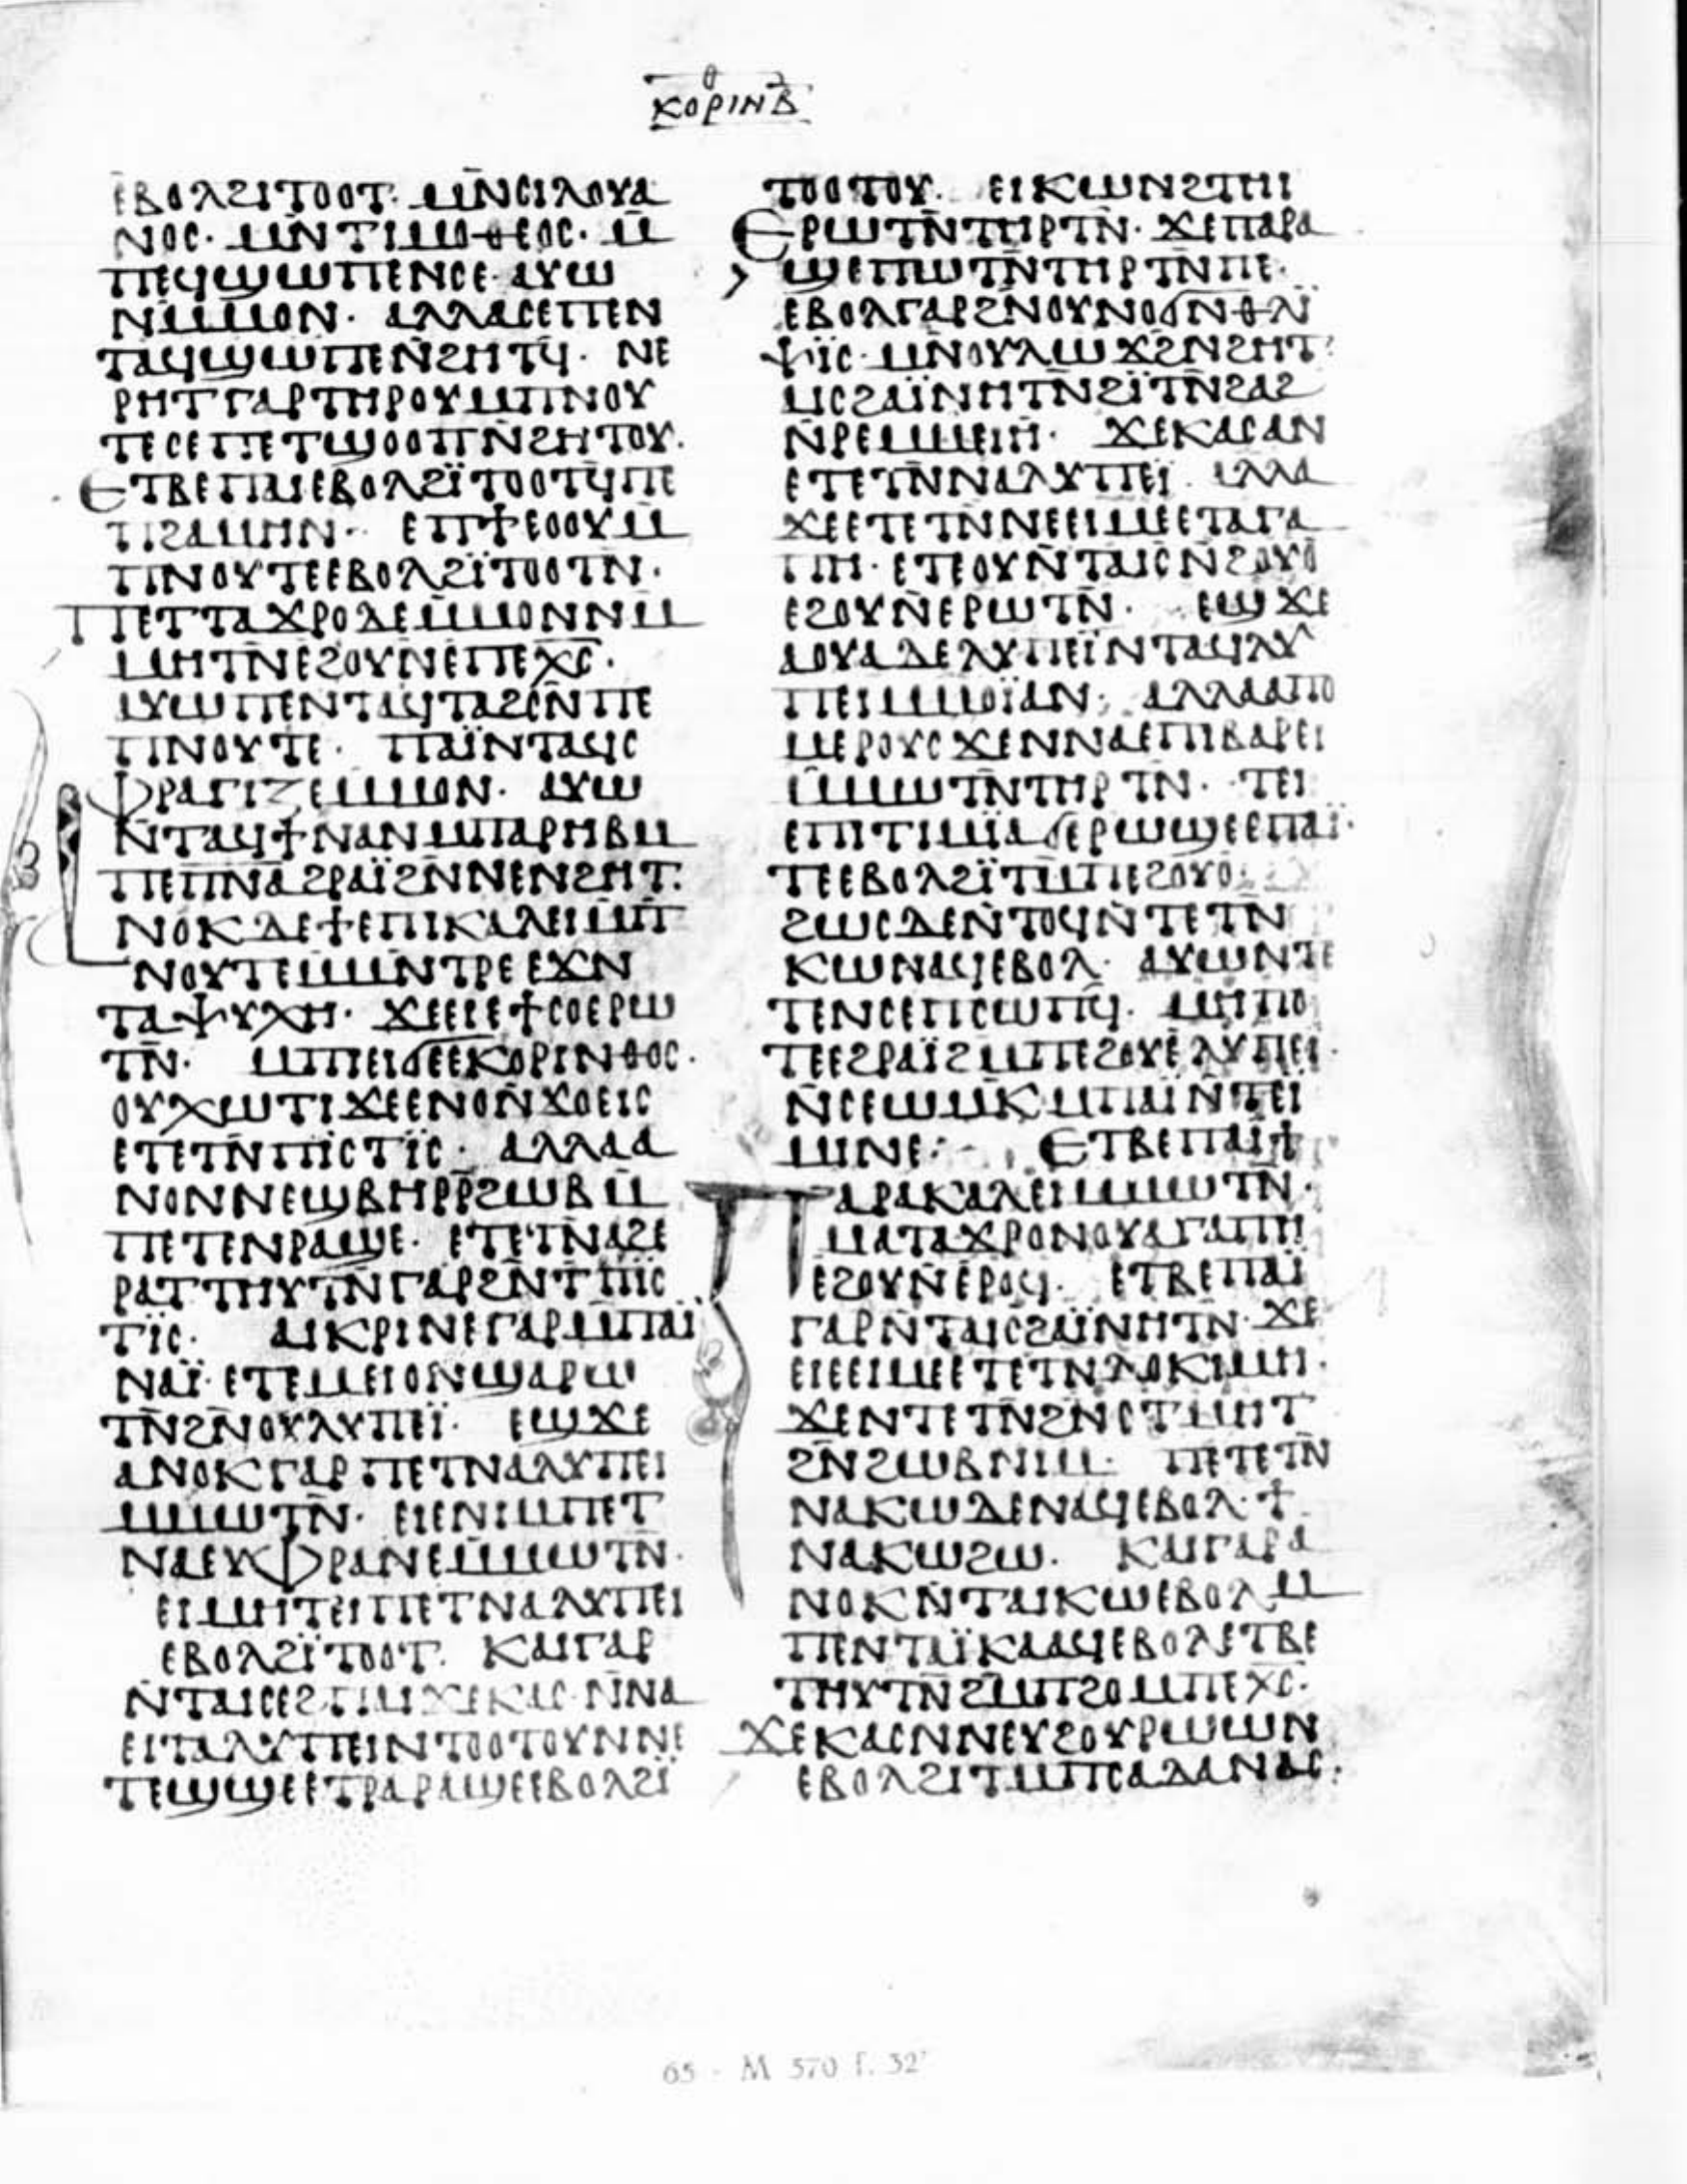 ⲕⲟⲣⲓⲛⲑ ⲃ̄
ⲉⲃⲟⲗϩⲓⲧⲟⲟⲧ· ⲙⲛ̄ⲥⲓⲗⲟⲩⲁ
ⲛⲟⲥ· ⲙⲛ̄ⲧⲓⲙⲟⲑⲉⲟⲥ· ⲙ̄
ⲡⲉϥϣⲱⲡⲉⲛⲥⲉ· ⲁⲩⲱ
ⲛ̄ⲙ̄ⲙⲟⲛ· ⲁⲗⲗⲁⲥⲉⲡⲉⲛ
ⲧⲁϥϣⲱⲡⲉⲛ̄ϩⲏⲧϥ̄· ⲛⲉ
ⲣⲏⲧⲅⲁⲣⲧⲏⲣⲟⲩⲙ̄ⲡⲛⲟⲩ
ⲧⲉⲥⲉⲡⲉⲧϣⲟⲟⲡⲛ̄ϩⲏⲧⲟⲩ·
ⲉⲧⲃⲉⲡⲁⲓⲉⲃⲟⲗϩⲓ̈ⲧⲟⲟⲧϥ̄ⲡⲉ
ⲡϩⲁⲙⲏⲛ· ⲉⲡϯⲉⲟⲟⲩⲙ̄
ⲡⲛⲟⲩⲧⲉⲉⲃⲟⲗϩⲓ̈ⲧⲟⲟⲧⲛ̄·
ⲡⲉⲧⲧⲁϫⲣⲟⲇⲉⲙ̄ⲙⲟⲛⲛⲙ̄
ⲙⲏⲧⲛ̄ⲉϩⲟⲩⲛⲉⲡⲉⲭ̄ⲥ̄·
ⲁⲩⲱⲡⲉⲛⲧⲁϥⲧⲁϩⲥⲛ̄ⲡⲉ
ⲡⲛⲟⲩⲧⲉ· ⲡⲁⲓ̈ⲛⲧⲁϥⲥ
ⲫⲣⲁⲅⲓⲍⲉⲙ̄ⲙⲟⲛ· ⲁⲩⲱ
ⲛ̄ⲧⲁϥϯⲛⲁⲛⲙ̄ⲡⲁⲣⲏⲃⲙ̄
ⲡⲉⲡ̄ⲛ̄ⲁ̄ϩⲣⲁⲓ̈ϩⲛ̄ⲛⲉⲛϩⲏⲧ·
ⲁⲛⲟⲕⲇⲉϯⲉⲡⲓⲕⲁⲗⲉⲓⲙ̄ⲡ
ⲛⲟⲩⲧⲉⲙ̄ⲙⲛ̄ⲧⲣⲉⲉϫⲛ̄
ⲧⲁⲯⲩⲭⲏ· ϫⲉⲉⲓⲉϯⲥⲟⲉⲣⲱ
ⲧⲛ̄· ⲙ̄ⲡⲉⲓϭⲉⲉⲕⲟⲣⲓⲛⲑⲟⲥ·
ⲟⲩⲭⲱⲧⲓϫⲉⲉⲛⲟⲛ̄ϫⲟⲉⲓⲥ
ⲉⲧⲉⲧⲛ̄ⲡⲓⲥⲧⲓ̈ⲥ· ⲁⲗⲗⲁⲁ
ⲛⲟⲛⲛⲉϣⲃⲏⲣⲣ̄ϩⲱⲃⲙ̄
ⲡⲉⲧⲉⲛⲣⲁϣⲉ· ⲉⲧⲉⲧⲛⲁϩⲉ
ⲣⲁⲧⲧⲏⲩⲧⲛ̄ⲅⲁⲣϩⲛ̄ⲧⲡⲓⲥ
ⲧⲓ̈ⲥ· ⲁⲓⲕⲣⲓⲛⲉⲅⲁⲣⲙ̄ⲡⲁⲓ̈
ⲛⲁⲓ̈· ⲉⲧⲉⲙⲉⲓⲟⲛϣⲁⲣⲱ
ⲧⲛ̄ϩⲛ̄ⲟⲩⲗⲩⲡⲉⲓ̈· ⲉϣϫⲉ
ⲁⲛⲟⲕⲅⲁⲣⲡⲉⲧⲛⲁⲗⲩⲡⲉⲓ
ⲙ̄ⲙⲱⲧⲛ̄· ⲉⲓⲉⲛⲓⲙⲡⲉⲧ
ⲛⲁⲉⲩⲫⲣⲁⲛⲉⲙ̄ⲙⲱⲧⲛ̄·
ⲉⲓⲙⲏⲧⲉⲓⲡⲉⲧⲛⲁⲗⲩⲡⲉⲓ
ⲉⲃⲟⲗϩⲓ̈ⲧⲟⲟⲧ· ⲕⲁⲓⲅⲁⲣ
ⲛ̄ⲧⲁⲓⲥⲉϩⲡⲁⲓϫⲉⲕⲁⲥ·ⲛ̄ⲛⲁ
ⲉⲓⲧⲁⲗⲩⲡⲉⲓⲛⲧⲟⲟⲧⲟⲩⲛⲛⲉ
ⲧⲉϣϣⲉⲉⲧⲣⲁⲣⲁϣⲉⲉⲃⲟⲗϩⲓ̈
ⲧⲟⲟⲧⲟⲩ· ⲉⲓⲕⲱⲛϩⲧⲏⲓ
ⲉⲣⲱⲧⲛ̄ⲧⲏⲣⲧⲛ̄· ϫⲉⲡⲁⲣⲁ
ϣⲉⲡⲱⲧⲛ̄ⲧⲏⲣⲧⲛ̄ⲡⲉ·
ⲉⲃⲟⲗⲅⲁⲣϩⲛ̄ⲟⲩⲛⲟϭⲛ̄ⲑⲗⲓ̈
ⲯⲓ̈ⲥ· ⲙⲛ̄ⲟⲩⲗⲱϫϩⲛ̄ϩⲏⲧ·
ⲁⲓⲥϩⲁⲓ̈ⲛⲏⲧⲛ̄ϩⲓ̈ⲧⲛ̄ϩⲁϩ
ⲛ̄ⲣⲙ̄ⲙⲉⲓⲏ· ϫⲉⲕⲁⲥⲁⲛ
ⲉⲧⲉⲧⲛ̄ⲛⲁⲗⲩⲡⲉⲓ̈· ⲁⲗⲗⲁ
ϫⲉⲉⲧⲉⲧⲛ̄ⲛⲉⲉⲓⲙⲉⲉⲧⲁⲅⲁ
ⲡⲏ· ⲉⲧⲉⲟⲩⲛ̄ⲧⲁⲓⲥⲛ̄ϩⲟⲩⲟ
ⲉϩⲟⲩⲛⲉⲣⲱⲧⲛ̄· ⲉϣϫⲉ
ⲁⲟⲩⲁⲇⲉⲗⲩⲡⲉⲓ̈ⲛⲧⲁϥⲗⲩ
ⲡⲉⲓⲙ̄ⲙⲟⲓ̈ⲁⲛ· ⲁⲗⲗⲁⲁⲡⲟ
ⲙⲉⲣⲟⲩⲥϫⲉⲛⲛⲁⲉⲡⲓⲃⲁⲣⲉⲓ
ⲙ̄ⲙⲱⲧⲛ̄ⲧⲏⲣⲧⲛ̄· ⲧⲉⲓ
ⲉⲡⲓⲧⲓⲙⲓ̈ⲁϭⲉⲣⲱϣⲉⲉⲡⲁⲓ̈·
ⲧⲉⲉⲃⲟⲗϩⲓ̈ⲧⲙ̄ⲡⲉϩⲟⲩⲟ·
ϩⲱⲥⲇⲉⲛ̄ⲧⲟϥⲛ̄ⲧⲉⲧⲛ̄
ⲕⲱⲛⲁϥⲉⲃⲟⲗ· ⲁⲩⲱⲛⲧⲉ
ⲧⲉⲛⲥⲉⲡⲥⲱⲡϥ̄· ⲙⲏⲡⲟ
ⲧⲉⲉϩⲣⲁⲓ̈ϩⲙ̄ⲡⲉϩⲟⲩⲉⲗⲩⲡⲉⲓ·
ⲛ̄ⲥⲉⲱⲙⲕ̄ⲙ̄ⲡⲁⲓ̈ⲛ̄ⲧⲉⲓ̈
ⲙⲓⲛⲉ· ⲉⲧⲃⲉⲡⲁⲓϯ
ⲡⲁⲣⲁⲕⲁⲗⲉⲓⲙ̄ⲙⲱⲧⲛ̄·
ⲙⲁⲧⲁϫⲣⲟⲛⲟⲩⲁⲅⲁⲡⲏ
ⲉϩⲟⲩⲛⲉⲣⲟϥ· ⲉⲧⲃⲉⲡⲁⲓ̈
ⲅⲁⲣⲛ̄ⲧⲁⲓⲥϩⲁⲓ̈ⲛⲏⲧⲛ̄·ϫⲉ
ⲉⲓⲉⲉⲓⲙⲉⲉⲧⲉⲧⲛⲇⲟⲕⲓⲙⲏ·
ϫⲉⲛⲧⲉⲧⲛ̄ϩⲛ̄ⲥⲧⲙⲏⲧ
ϩⲛ̄ϩⲱⲃⲛⲓⲙ· ⲡⲉⲧⲉⲧⲛ̄
ⲛⲁⲕⲱⲇⲉⲛⲁϥⲉⲃⲟⲗ·ϯ
ⲛⲁⲕⲱϩⲱ· ⲕⲁⲓⲅⲁⲣⲁ
ⲛⲟⲕⲛ̄ⲧⲁⲓⲕⲱⲉⲃⲟⲗⲙ̄
ⲡⲉⲛⲧⲁⲓ̈ⲕⲁⲁϥⲉⲃⲟⲗⲉⲧⲃⲉ
ⲧⲏⲩⲧⲛ̄ϩⲙ̄ⲡϩⲟⲙ̄ⲡⲉⲭ̄ⲥ̄·
ϫⲉⲕⲁⲥⲛⲛⲉⲩϩⲟⲩⲣⲱⲱⲛ
ⲉⲃⲟⲗϩⲓⲧⲙ̄ⲡⲥⲁⲇⲁⲛⲁⲥ:
65 - M 570 f. 32ᵛ